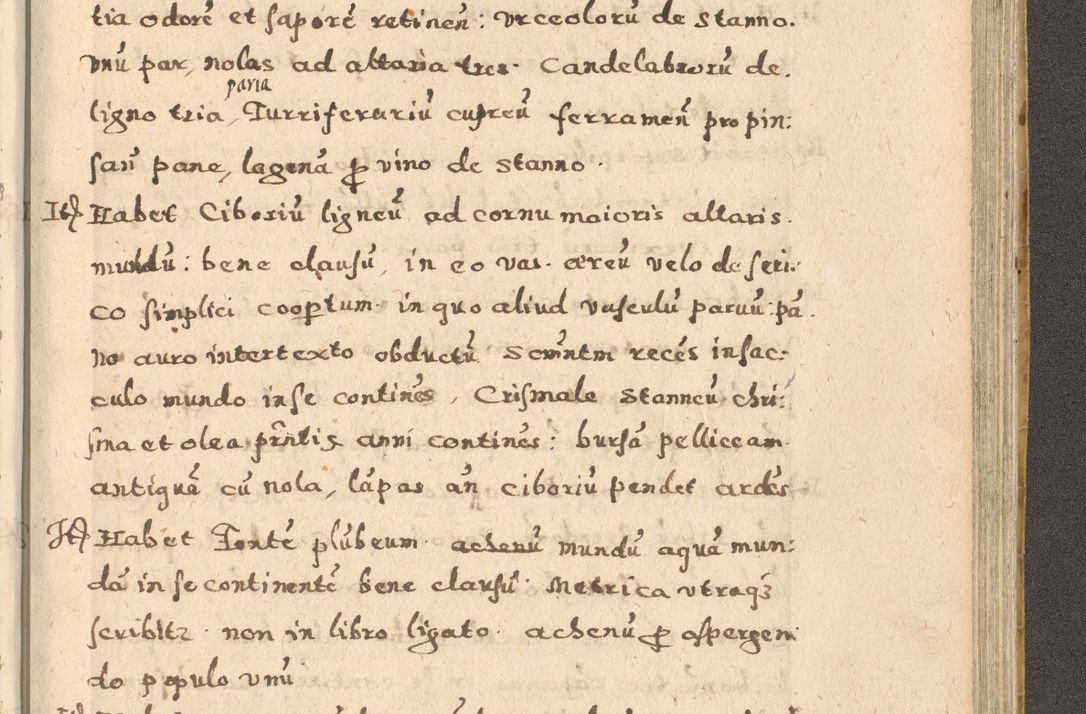 tia odorē et saporē retinen: Urceolorū de Stanno.
Vnū par, nolas ad altaria tres. Candelabrorū de.
paria
ligno tria, Turriferariū cupreū ferramen̄ pro pin:
san̄ pane, lagenā ꝓ vino de Stanno.
Itē Habet Ciboriū ligneū ad cornu maioris altaris.
mundū: bene clausū, in eo vas. æreū velo de seri:
co simplici coopertum. in quo aliud vasculū paruū: pā.
no auro intertexto obductū Scm̄ntm recēs in sac:
culo mundo in se continēs, Crismale Stanneū chri:
sma et olea pn̄tis anni continēs: bursā pelliceam.
antiquā cū nola, lāpas an̄ ciboriū pendet ardēs
Itē Habet Fontē plūbeum. achenū mundū aquā mun:
dā in se continentē bene clausū. Metrica vtraq3
scribitz. non in libro ligato. achenū ꝓ aspergen:
do populo vnū